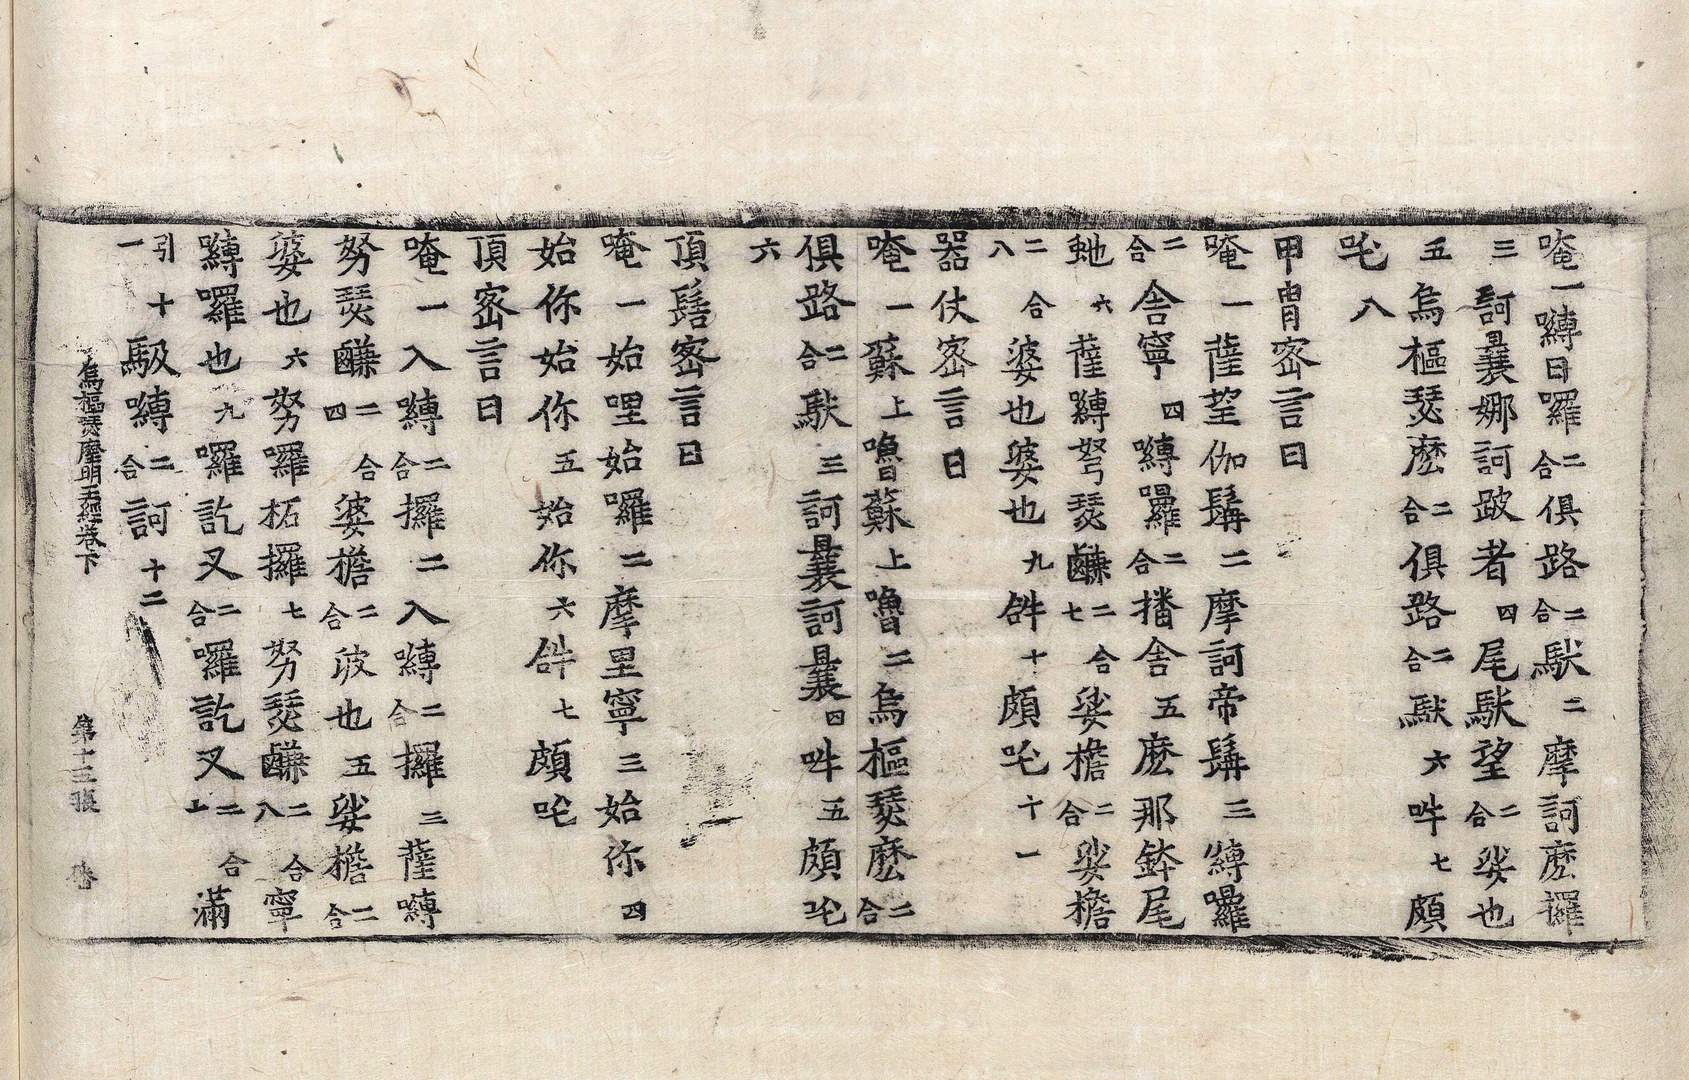 唵一嚩日囉二合俱路二合馱二摩訶麽攞
三訶曩娜訶跛者四尾馱望二合娑也
五烏樞瑟麽二合俱路二合馱六吽七頗
吒八
甲冑密言曰
唵一薩望伽髵二摩訶帝髵三嚩囉
二合舍寧四嚩囉二合播舍五麽那鉢尾
虵六薩嚩弩瑟鹻二合七娑檐二合娑檐
二合八婆也婆也九𤙖十頗吒十一
器仗密言曰
唵一蘇上嚕蘇上嚕二烏樞瑟麽二合
俱路二合馱三訶曩訶曩四吽五頗吒
六
頂髻密言曰
唵一始哩始囉二摩里寧三始你四
始你始你五始你六𤙖七頗吒
頂密言曰
唵一入嚩二合攞二入嚩二合攞三薩嚩
努瑟鹻二合四婆檐二合波也五娑檐二合
婆也六努囉柘攞七努瑟鹻二合八寧
嚩囉也九囉訖叉二合囉訖叉二合十滿
引十一馺嚩二合訶十二
烏樞瑟摩明王經卷下　第十三張